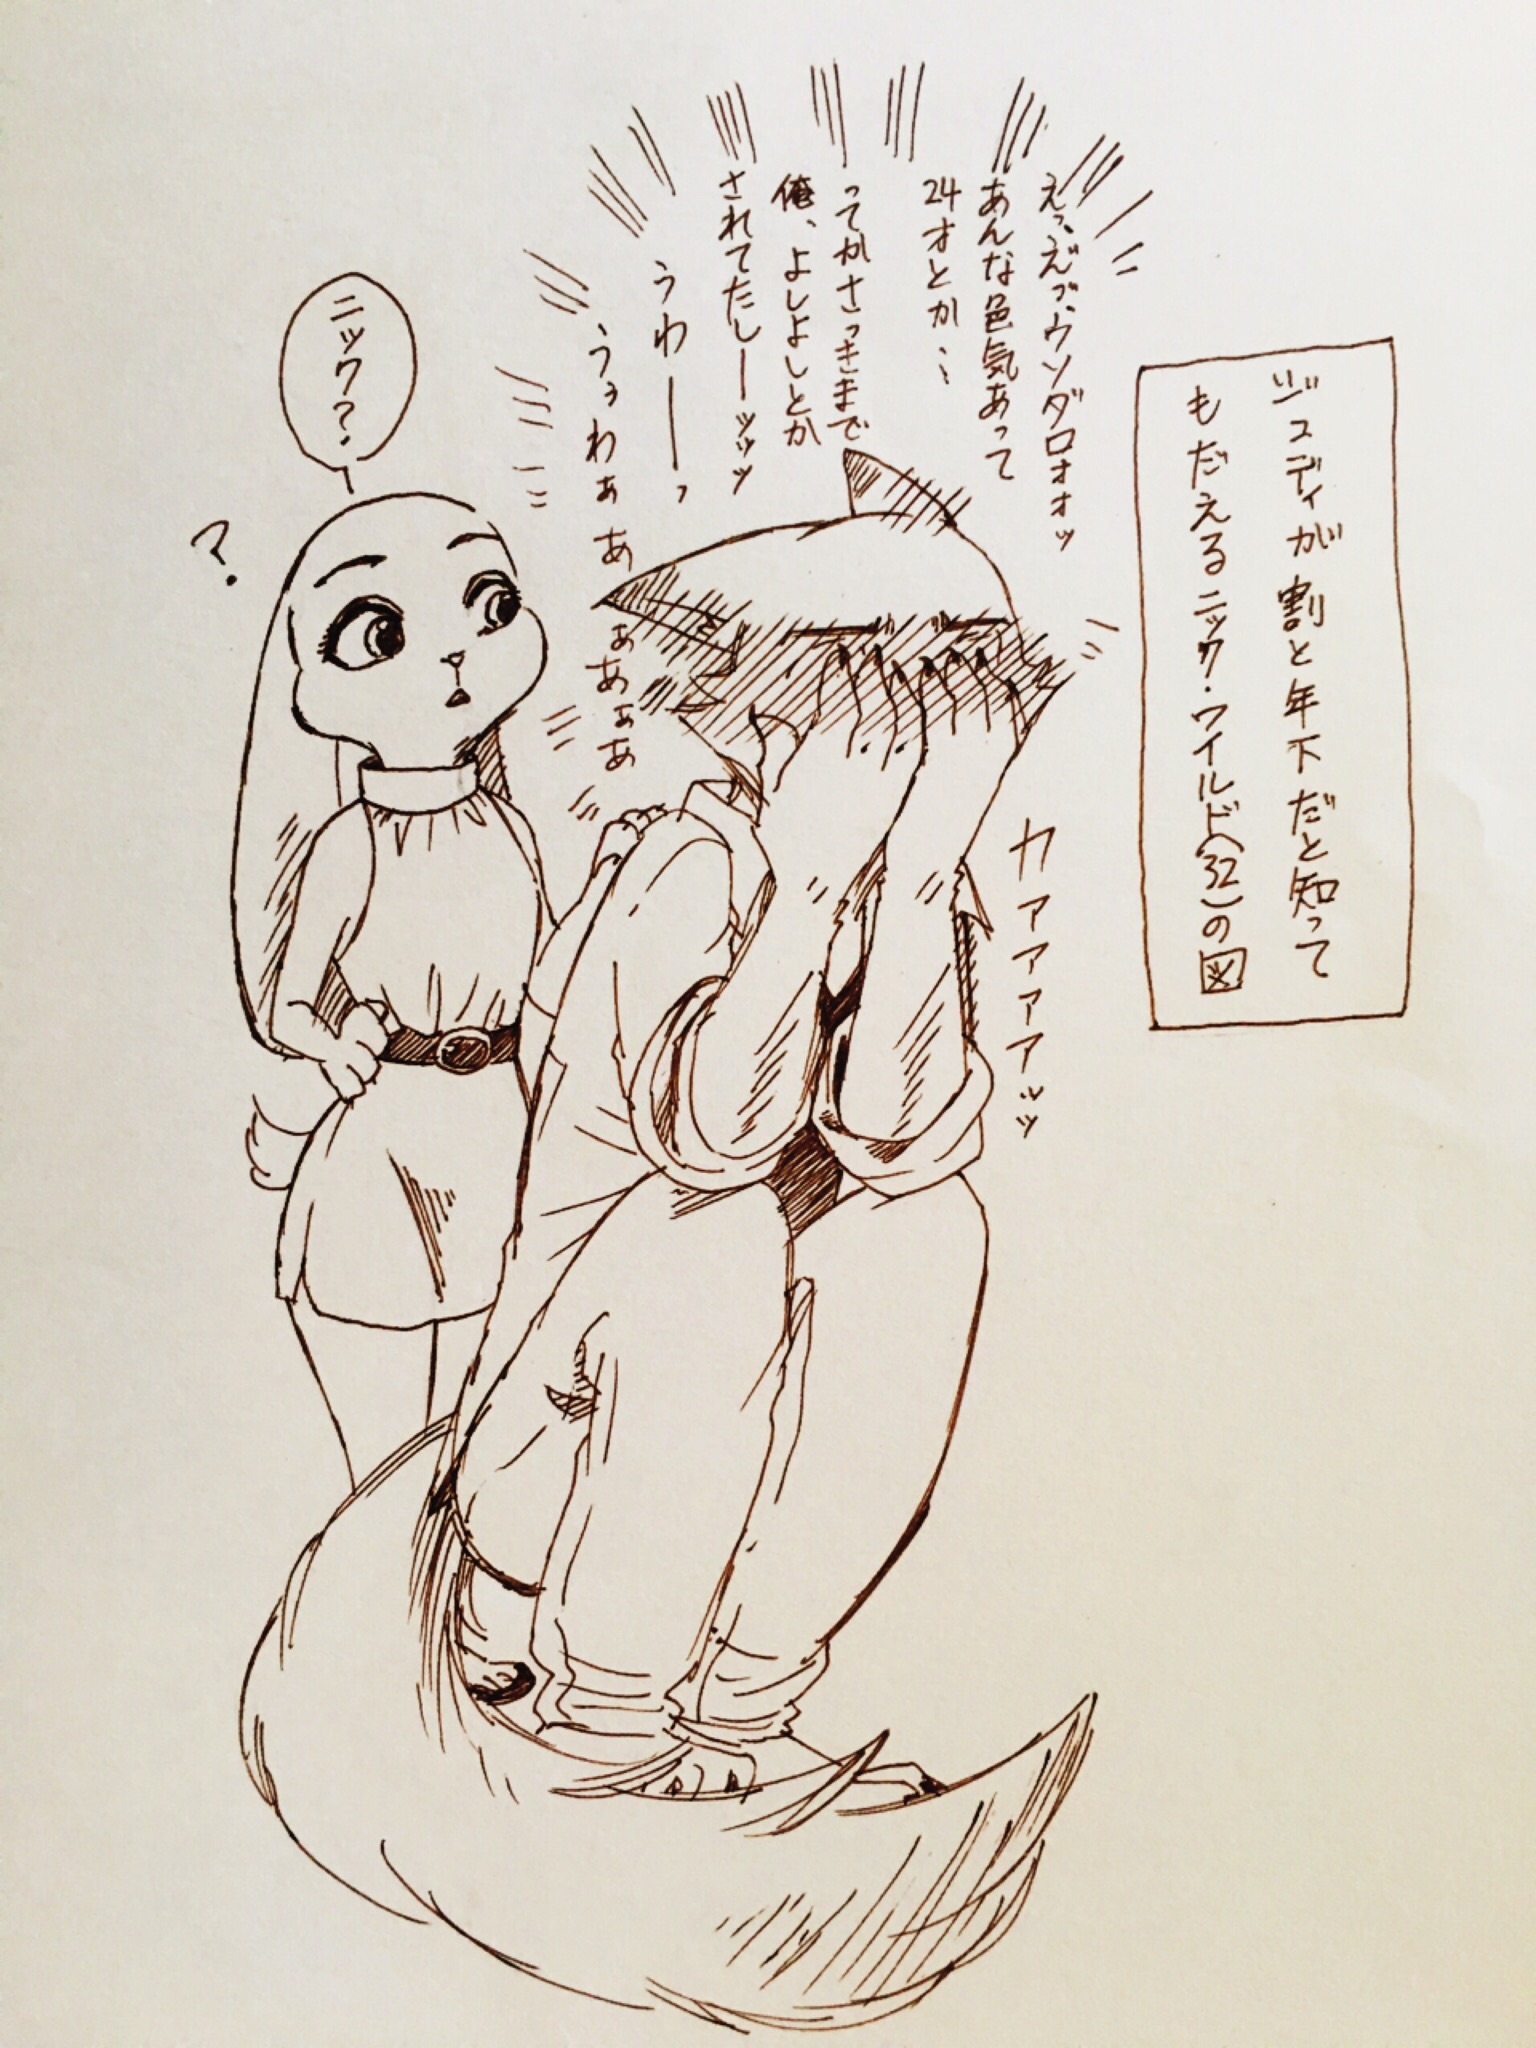 ジュディが割と年下だと知って
もだえるニック・ワイルド(32)の図
えっ、えっ、ウソダロォォッ
あんな色気あって
24才とか…
ってかさっきまで
俺、よしよしとか
されてたしーッッッ
うわーーっ
うぅわぁあぁあぁあ
カァァァァァッッ
ニック?
?